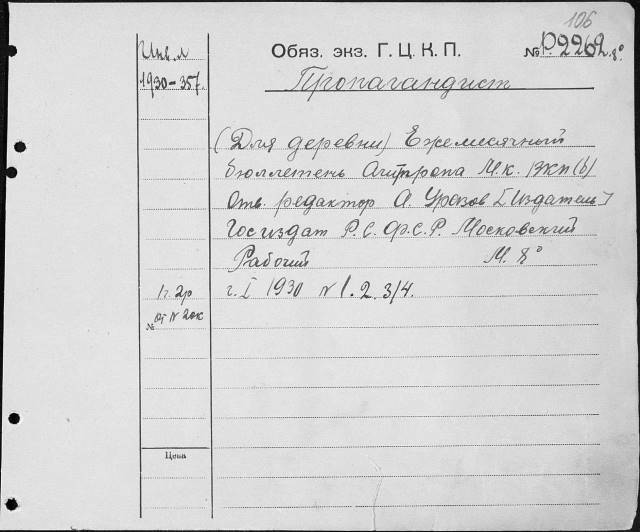 106
Инв. л
Обяз. экз. Г. Ц. К. П.
№ Р.2262 8°
1930-357.
Пропагандист
(Для деревни) Ежемесячный
бюллетень Агитпропа М.К. ВКП(б)
Отв. редактор А. Уразов [Издатель]
Госиздат Р.С.Ф.С.Р. Московский
Рабочий М. 8°
1 г. 2р г. I 1930 N 1. 2. 3/4.
№ от N 20к
Цена